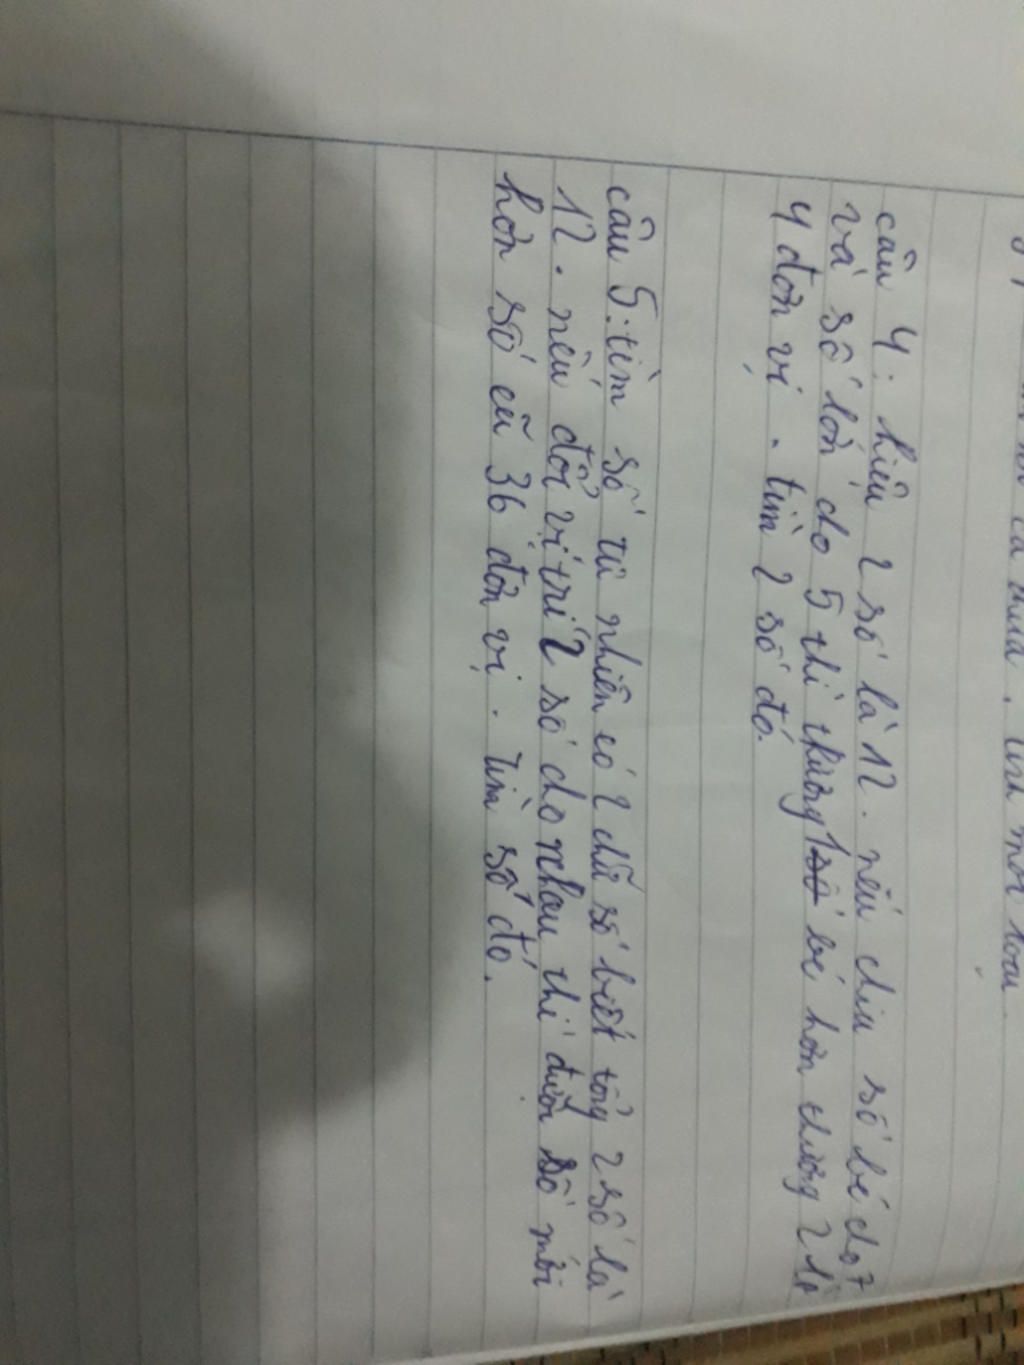 câu 4: hiệu 2 số là 12. nếu chia số bé cho 7
và số lớn cho 5 thì thương 1 bé hơn thương 2 là
4 đơn vị. tìm 2 số đó.
câu 5: tìm số tự nhiên có 2 chữ số biết tổng 2 số là
12. nếu đổi vị trí 2 số cho nhau thì được số mới
hơn số cũ 36 đơn vị. tìm số đó.